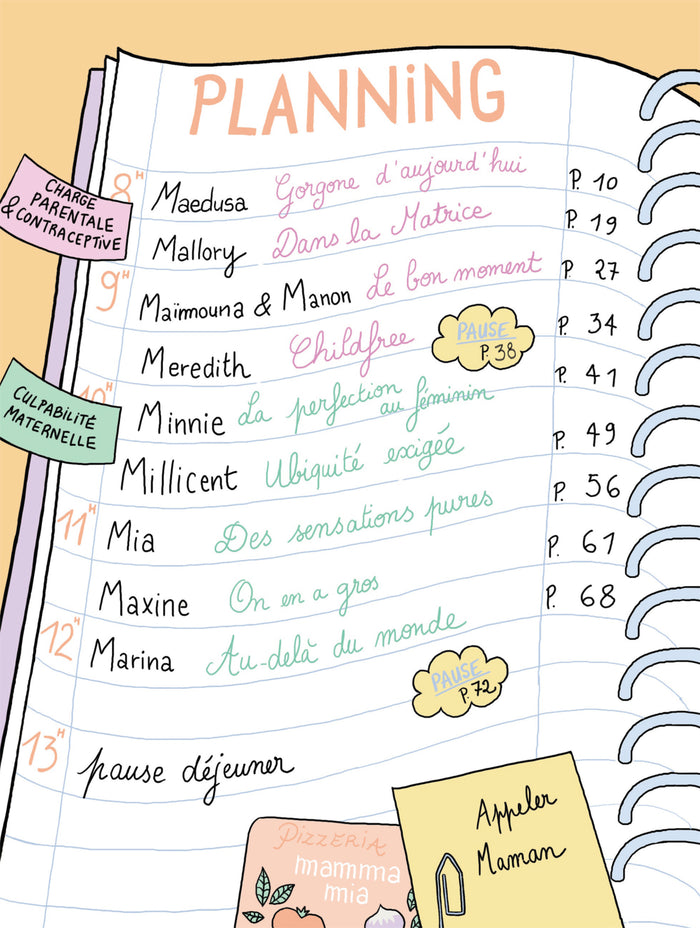 PLANNiNG
8H
CHARGE
PARENTALE
& CONTRACEPTIVE
Maedusa Gorgone d'aujourd'hui P. 10
Mallory Dans la Matrice P. 19
9H
Maïmouna & Manon Le bon moment P 27
Meredith Childfree P. 34
PAUSE
P. 38
CULPABILITÉ
MATERNELLE
10H
Minnie La perfection au féminin P. 41
Millicent Ubiquité exigée P. 49
11H
Mia Des sensations pures P. 56
Maxine On en a gros P. 61
12H
Marina Au-delà du monde P. 68
PAUSE
P. 72
13H
pause déjeuner
PiZZERiA
mamma
mia
Appeler
Maman